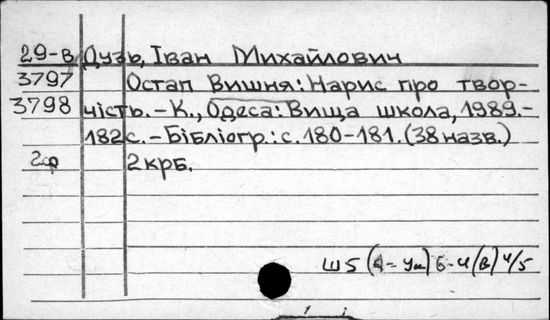 29-в Дузь, Іван Михайлович
3797 Остап Вишня: Нарис про твор-
3798 чість. – К., Одеса: Вища школа, 1989. –
182с. – Бібліогр.: с. 180–181. (38 назв.)
2 крб.
Ш5